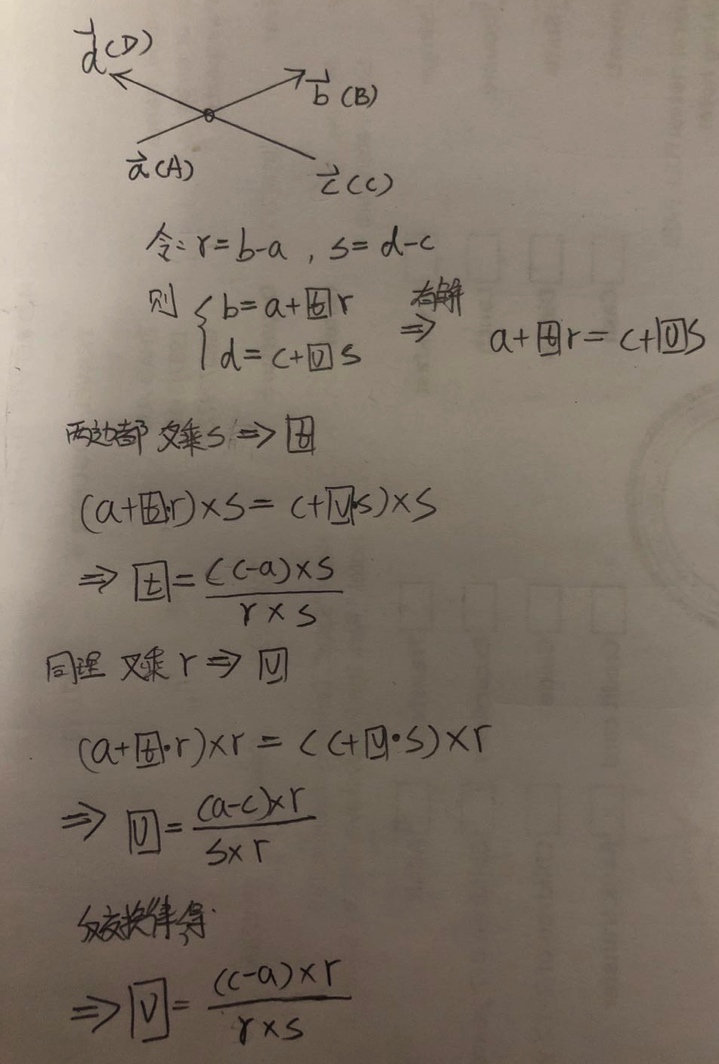 d(D)
b(B)
a(A)
c(C)
令: r=b-a, s=d-c
则 { b=a+t r 有解
d=c+u s ⇒ a+t r=c+u s
两边都叉乘s ⇒ t
(a+t·r)×s= c+u·s)×s
⇒ t= (c-a)×s / r×s
同理 叉乘 r ⇒ u
(a+t·r)×r=(c+u·s)×r
⇒ u= (a-c)×r / s×r
交换律得
⇒ u= (c-a)×r / r×s